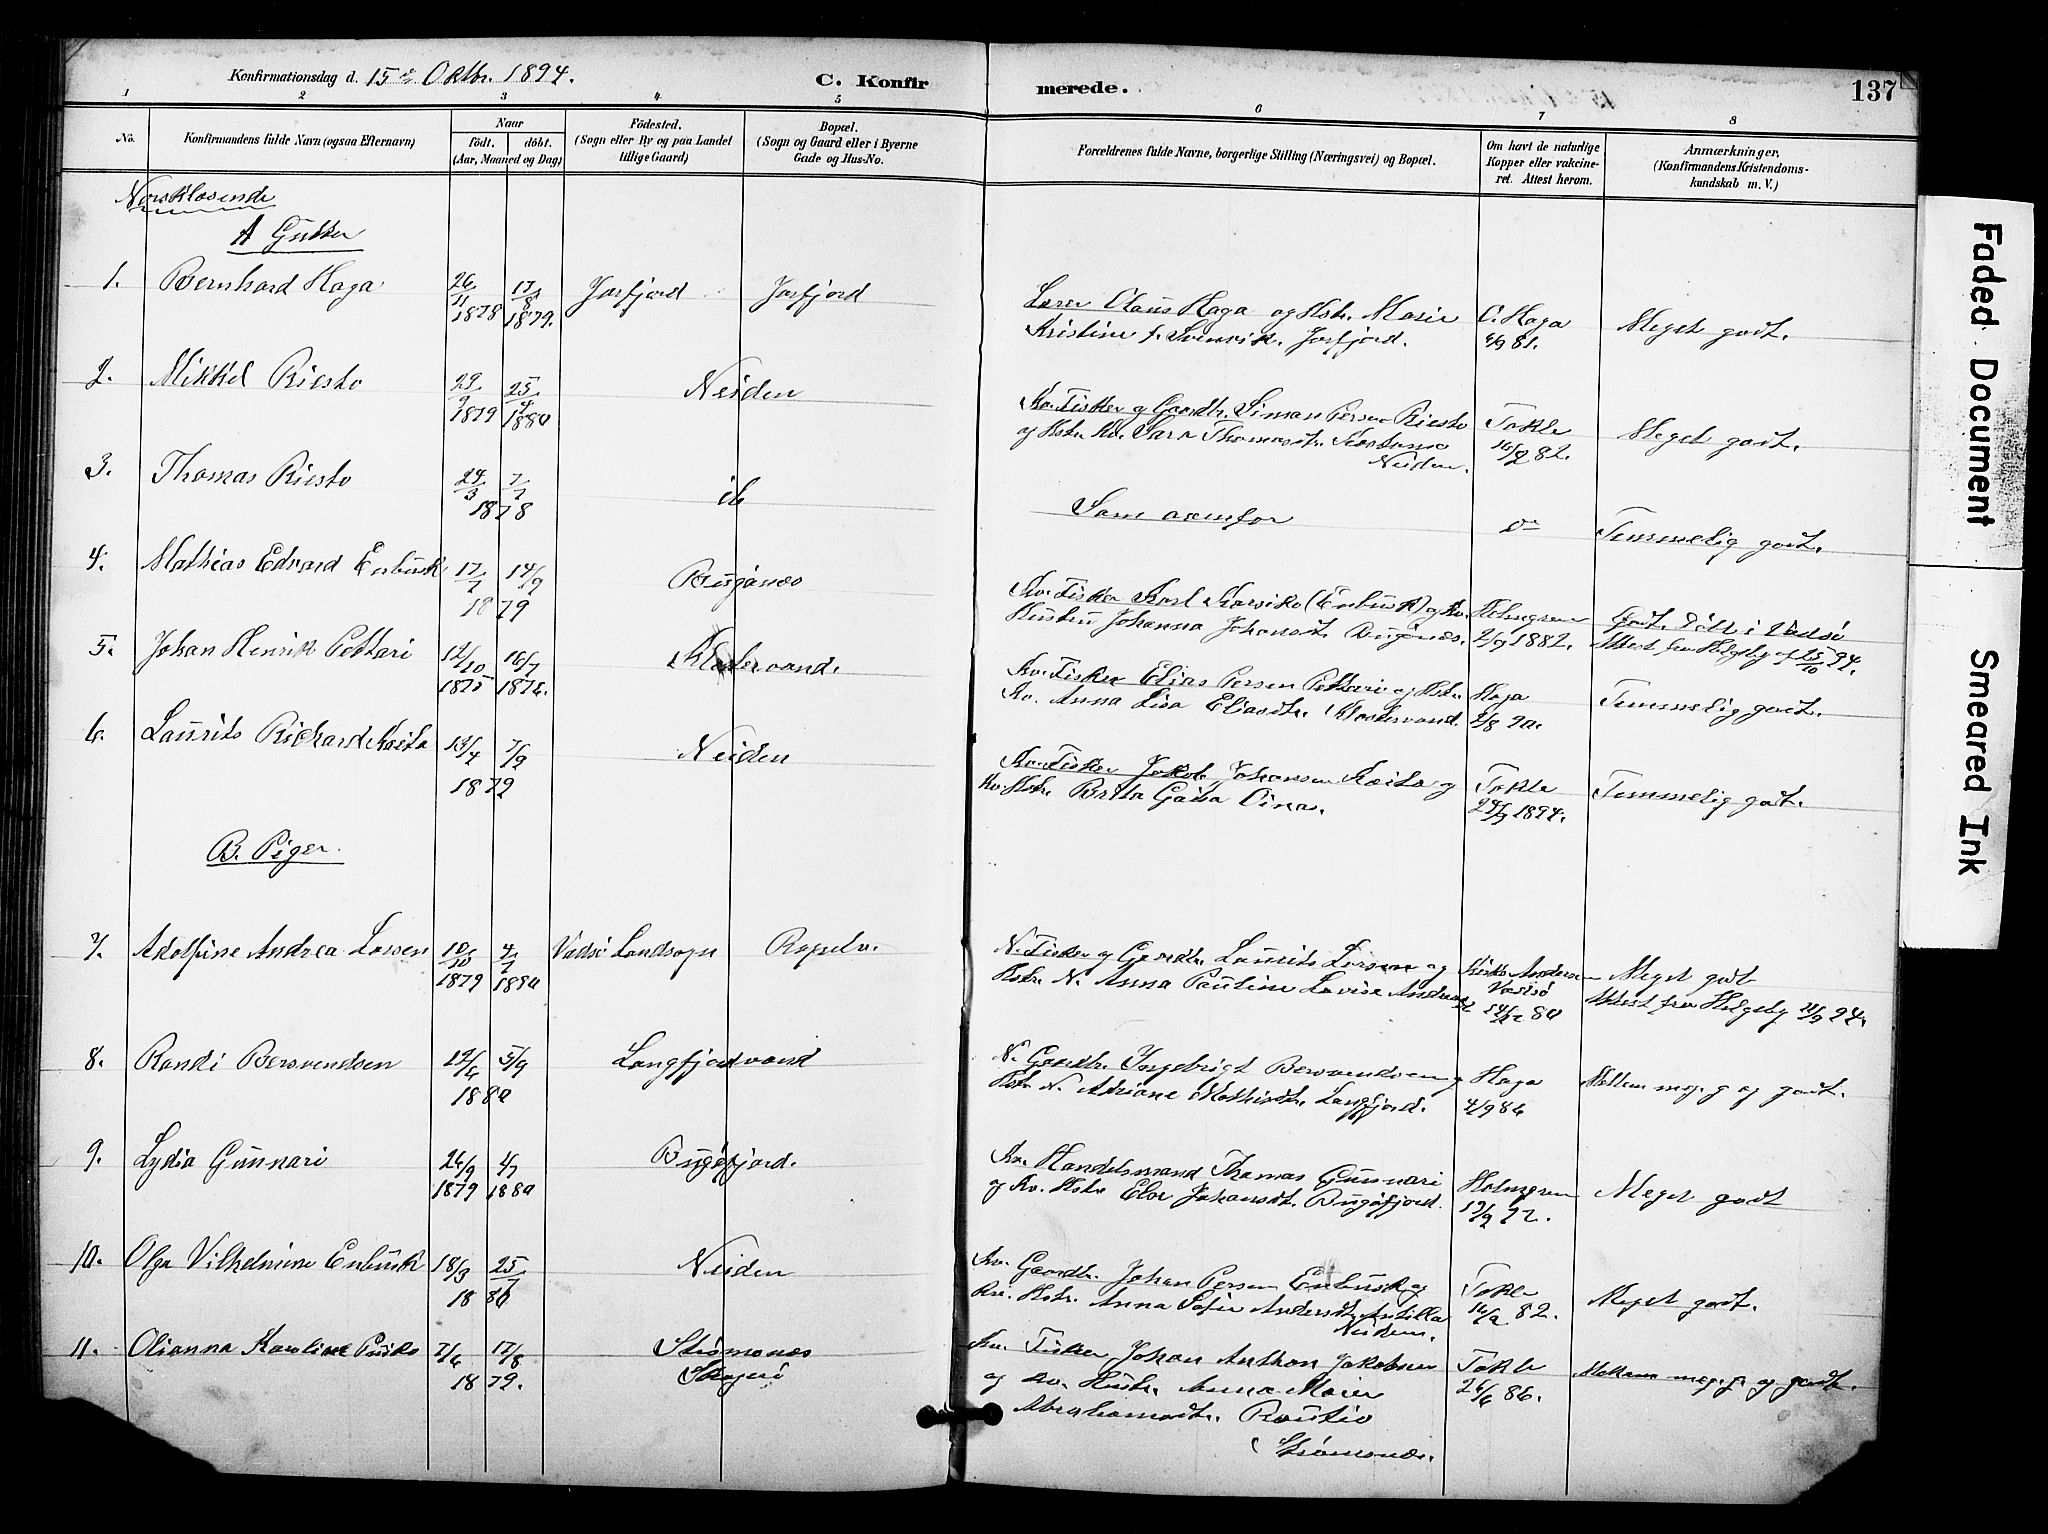 Konfirmationsdag d. 15de Oktbr. 1894.
C. Konfirmerede.
137
1 2 3 4 5 6 7 8
No.
Konfirmandens fulde Navn (ogsaa Efternavn)
Naar
født. døbt.
(Aar, Maaned og Dag)
Fødested.
(Sogn eller By og paa Landet
tillige Gaard)
Bopæl.
(Sogn og Gaard eller i Byerne
Gade og Hus-No.
Forældrenes fulde Navne, borgerlige Stilling (Næringsvei) og Bopæl.
Om havt de naturlige
Kopper eller vakcine-
ret. Attest herom.
Anmærkninger,
(Konfirmandens Kristendoms-
kundskab m. V.)
Norsklæsende
A Gutter
1. Bernhard Haga 26/11 1878 17/8 1879. Jarfjord Jarfjord
Lærer Olaus Haga og Hstr. Marie
Kristine f. Jarfjord.
O. Haga
81.
Meget godt.
2. Mikkel Riesto 29/9 1879 25/4 1880 Neiden
Kv. Fisker og Gaardbr. Simon Persen Riesto
og Hstr. Kv. Sara Thomasdtr.
Neiden.
Takle
16/2 82.
Meget godt.
3. Thomas Riesto 24/3 7/7 1878 ib
Som ovenfor
do
Temmelig godt.
4. Mathias Edvard Enbusk 17/7 14/9 1879 Bugønæs
Kv. Fisker Karl (Enbusk) og Kv.
Hustru Johanna Johansdt. Bugønæs.
Holmgren
2/9 1882.
Godt. Født i Vadsø
Attest fra Helgeby af 15/10 94.
5. Johan Henrik Pettari 12/10 1875 16/7 1876. Klostervand.
Kv. Fisker Elias Persen Pettari og Hstr.
Kv. Anna Lisa Eliasdtr. Klostervand.
Haga
2/8 90.
Temmelig godt.
6. Laurits Richard Koita 13/4 7/9 1879 Neiden
Kv. Fisker Jakob Johansen Koita og
Kv. Hstr. Brita Gaisa Oinas.
Takle
24/9 1894.
Temmelig godt.
B. Piger.
7. Adolfine Andrea Larsen 10/10 1879 4/7 1880 Vadsø Landsogn
N. Fisker og Gaardbr. Laurits Larsen og
Hstr. N. Anna Pauline Lovise
Andersen
Vadsø
80
Meget godt
Attest fra Helgeby 94.
8. Randi Bersvendsen 12/6 5/9 1880 Langfjordvand
N. Gaardbr. Ingebrigt Bersvendsen og
Hstr. N. Adriane Mathisdtr. Langfjord.
Haga
4/9 86
Mellem meg. g og godt.
9. Lydia Gunnari 26/9 1879 4/7 1880 Bugøfjord.
Kv. Handelsmand Thomas Gunnari
og Kv. Hstr. Johansdt. Bugøfjord.
Holmgren
Meget godt
10. Olga Vilhelmine Enbusk 18/3 25/7 1880 Neiden
Kv. Gaardbr. Johan Persen Enbusk og
Kv. Hstr. Anna Sofie Andersdt. Antilla
Neiden.
Takle
82.
Meget godt.
11. Olianna Karoline 7/6 17/8 1879. Strømsnæs
Skogerø
Kv. Fisker Johan Anthon Jakobsen
og Kv. Hustr. Anna Maier
Abrahamsdt. Rautio
Strømsnæs.
Takle
26/6 86.
Mellem meg. g. og godt.
Faded Document
Smeared Ink